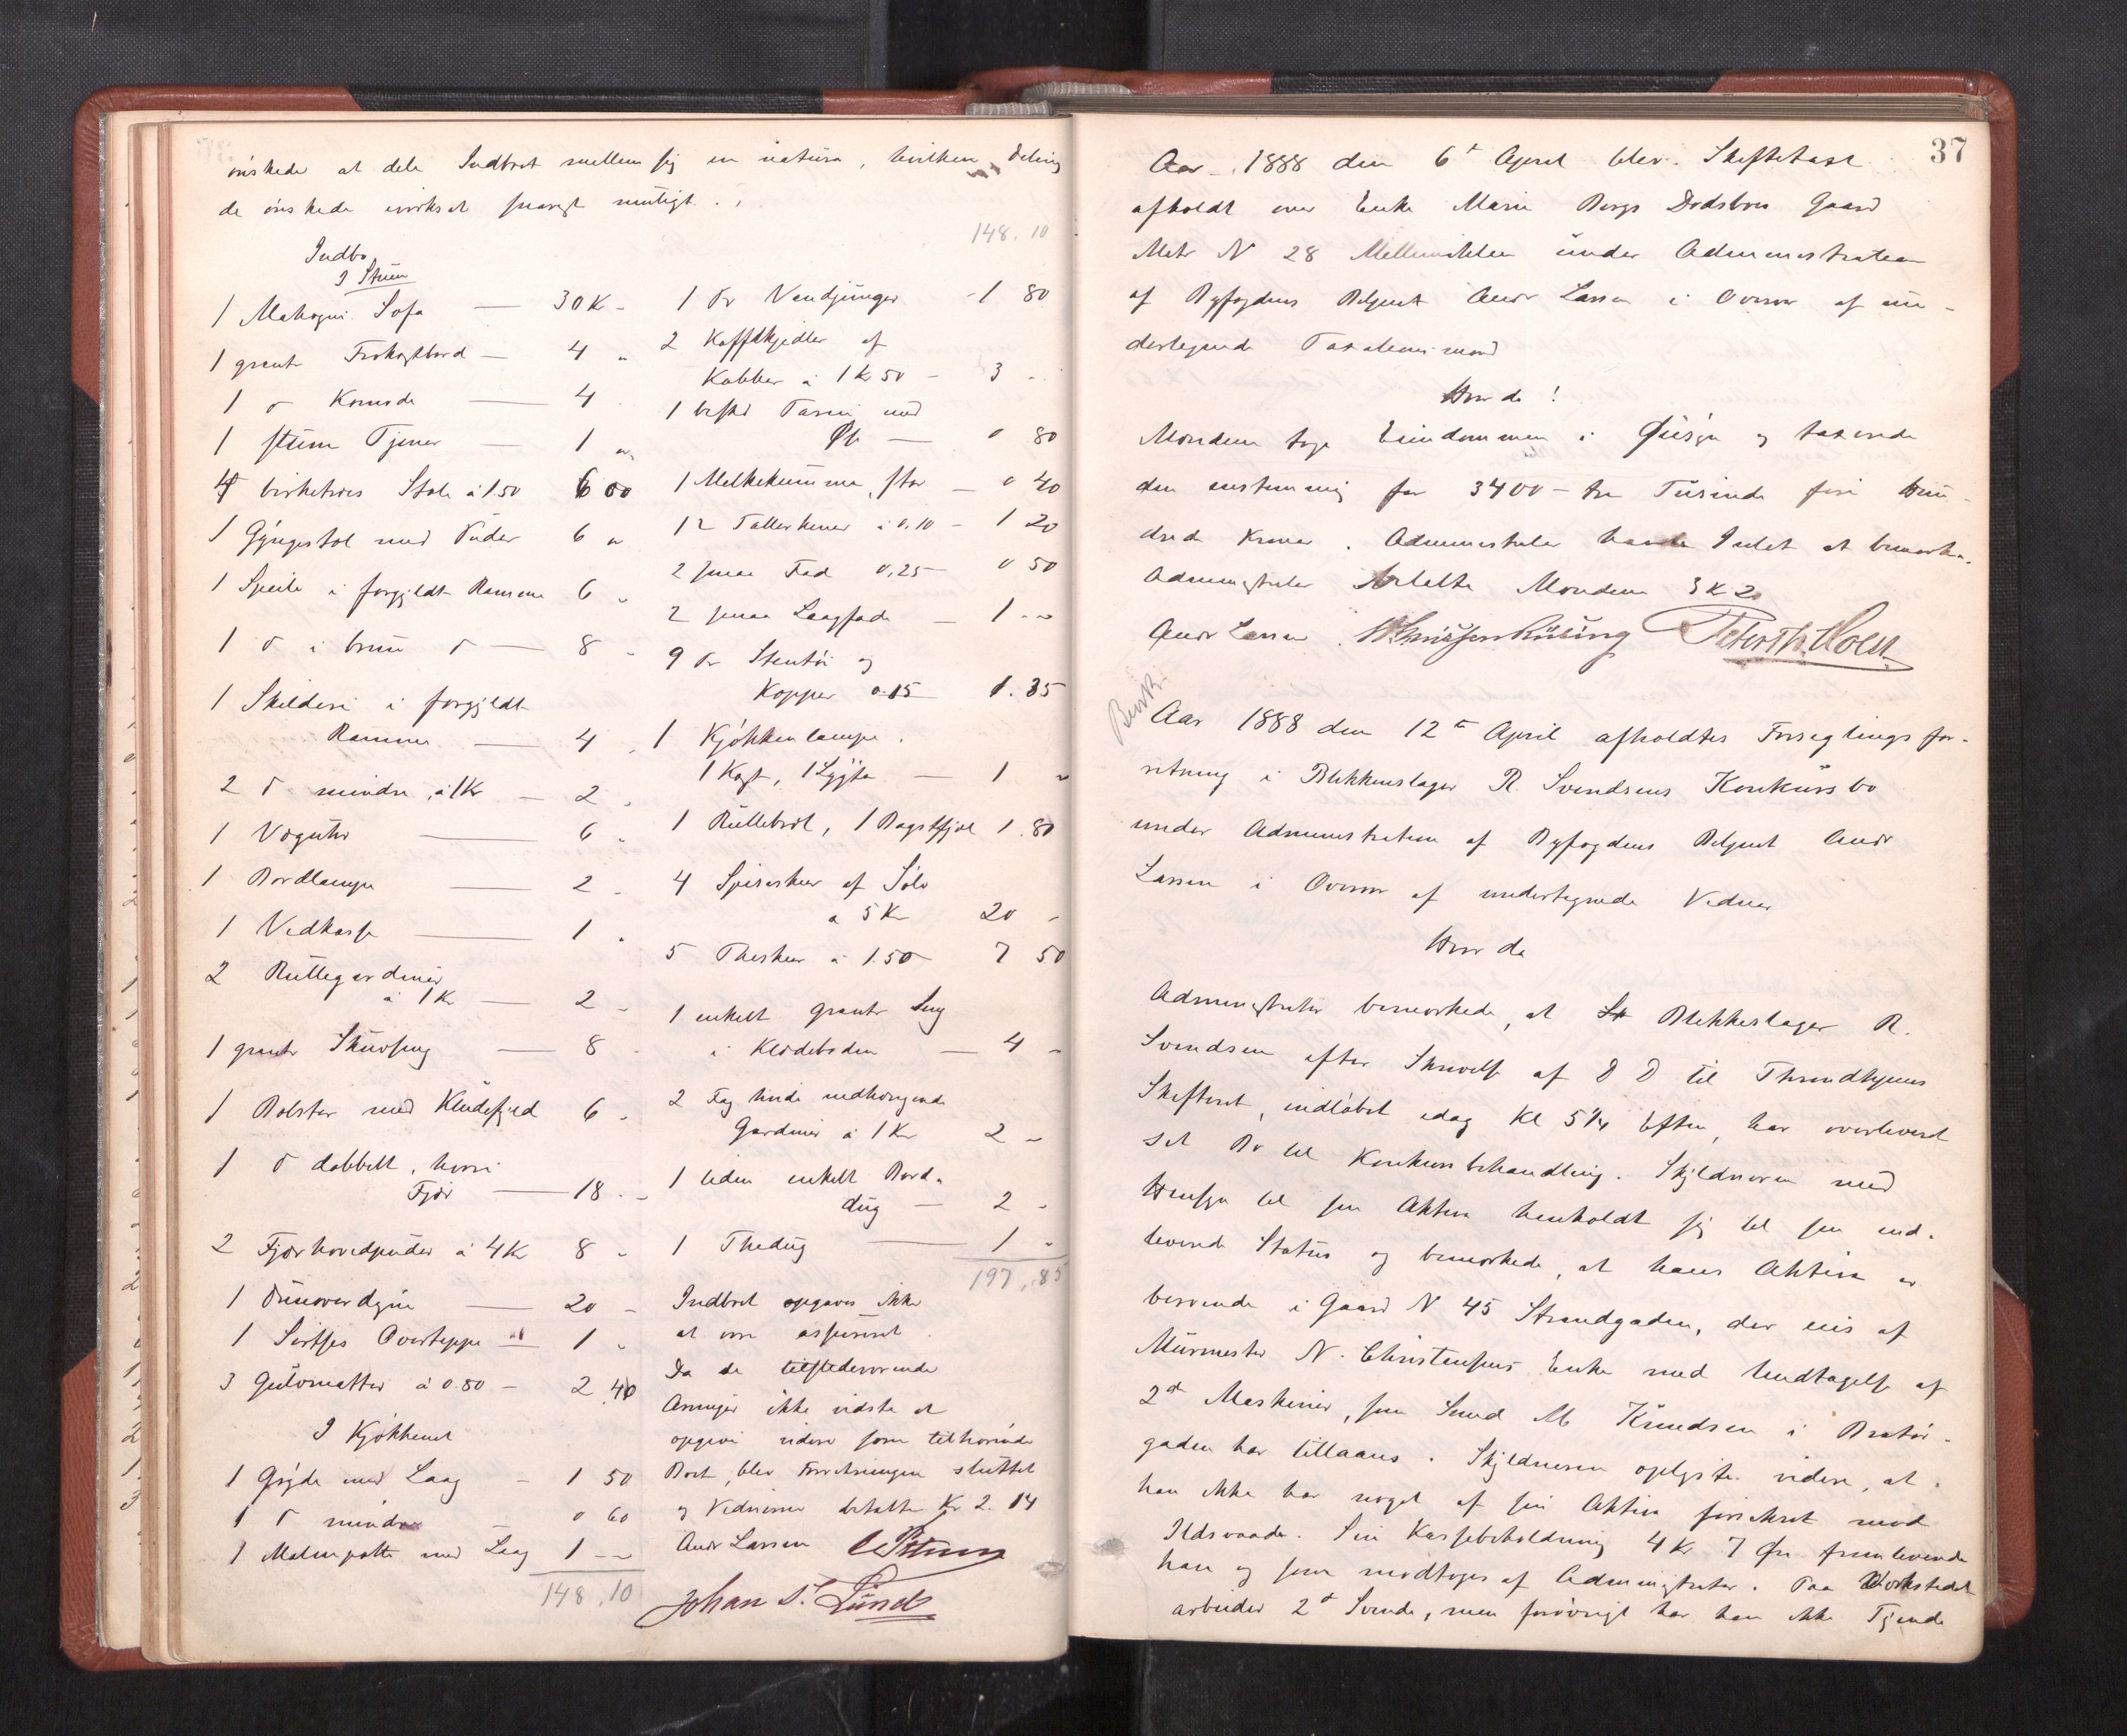 ønskede at dele Indboet mellem sig in natura, hvilken Deling
de ønskede iværksat snarest muligt.
Indbo
I Stuen
1 Mahogni Sofa — 30 K -
1 grant Frokostbord — 4 "
1 do Komode — 4
1 stum Tjener — 1 "
4 birketræes Stole à 1.50 6 00
1 Gyngestol med Puder 6 "
1 Speile i forgyldt Ramme 6 "
1 do i brun do — 8 -
1 Skilderi i forgyldt
Ramme — 4 "
2 do mindre, à 1 Kr — 2 "
1 Væguhr — 6 "
1 Bordlampe — 2 -
1 Vedkasse — 1 "
2 Rullegardiner
à 1 Kr — 2 -
1 grant Skuvseng — 8 -
1 Bolster med Kludefjed 6 -
1 do dobbelt,
Fjær — 18 -
2 Fjærhovedpuder à 4 Kr 8 "
1 Dunoverdyne — 20 -
1 Sirtses Overteppe — 1 "
3 Gulvmatter à 0.80 — 2.40
I Kjøkkenet
1 Gryde med Laag - 1 50
1 do mindre 0 60
1 Malmpotte med Laag 1 --
148.10
148.10
1 Pr Vandjunger - 1 80
2 Kaffekjedler af
Kobber à 1 Kr 50 - 3 -
1 med
— 0 80
1 Melkekumme, stor — 0 40
12 Tallerkener à 0.10 - 1 20
2 smaa Fad 0,25 — 0 50
2 smaa Laagfade — 1 --
9 Pr Stentøi og
Kopper 0.15 1.35
1 Kjøkkenlampe.
1 Kost, 1 Lygte — 1 "
1 Rullebræt, 1 Bagstfjæl 1.80
4 Spiseskeer af Sølv
à 5 Kr 20 -
5 Theskeer à 1.50 7 50
1 enkelt grant Seng
i Klædeboden — 4 -
2 Fag hvide nedhængende
Gardiner à 1 Kr 2 -
1 liden enkelt Bord-
dug — 2 -
1 Thedug — 1 "
197.85
Indboet opgaves ikke
at være assureret.
Da de tilstedeværende
Arvinger ikke vidste at
opgive videre som tilhørende
Boet, blev Forretningen sluttet
og Vidnerne betalte Kr 2.14
Andr Larsen
Johan S. Lund
37
Aar 1888 den 6te April blev Skiftetaxt
afholdt over Enke Marie Bergs Dødsboes Gaard
Matr N 28 Mellemilden under Administration
af Byfogdens Betjent Andr Larsen i Overvær af un-
dertegnede Taxationsmænd
Hvor da!
Mændene toge Eiendommen i Øiesyn og taxerede
den enstemmig for 3400 - tre Tusinde fire Hun-
drede Kroner. Administrator havde Intet at bemærke.
Administrator betalte Mændene 3 K 20
Andr Larsen. Peter Th. Holst
Aar 1888 den 12te April afholdtes Forseglingsfor-
retning i Blikkenslager R. Svendsens Konkursbo
under Administration af Byfogdens Betjent Andr
Larsen i Overvær af undertegnede Vidner
Hvor da
Administrator bemærkede, at Blikkeslager R.
Svendsen efter Skrivelse af D D til Throndhjems
Skifteret, indløbet idag Kl 5 1/4 Eftm, har overleveret
sit Bo til Konkursbehandling. Skyldneren med
Hensyn til sin Aktiva henholdt sig til sin ind-
leverede Status og bemærkede, at hans Aktiva er
beroende i Gaard N 45 Strandgaden, der eies af
Murmester N. Christensens Enke med Undtagelse af
2de Maskiner, som Smed M Knudsen i Bratør-
gaden har tillaans. Skyldneren oplyste videre, at
han ikke har noget af sin Aktiva forsikret mod
Ildsvaade. Sin Kassebeholdning 4 Kr 7 Øre fremleverede
han og som modtoges af Administrator. Paa Værkstedet
arbeider 2de Svende, men forøvrigt har han ikke Tjende